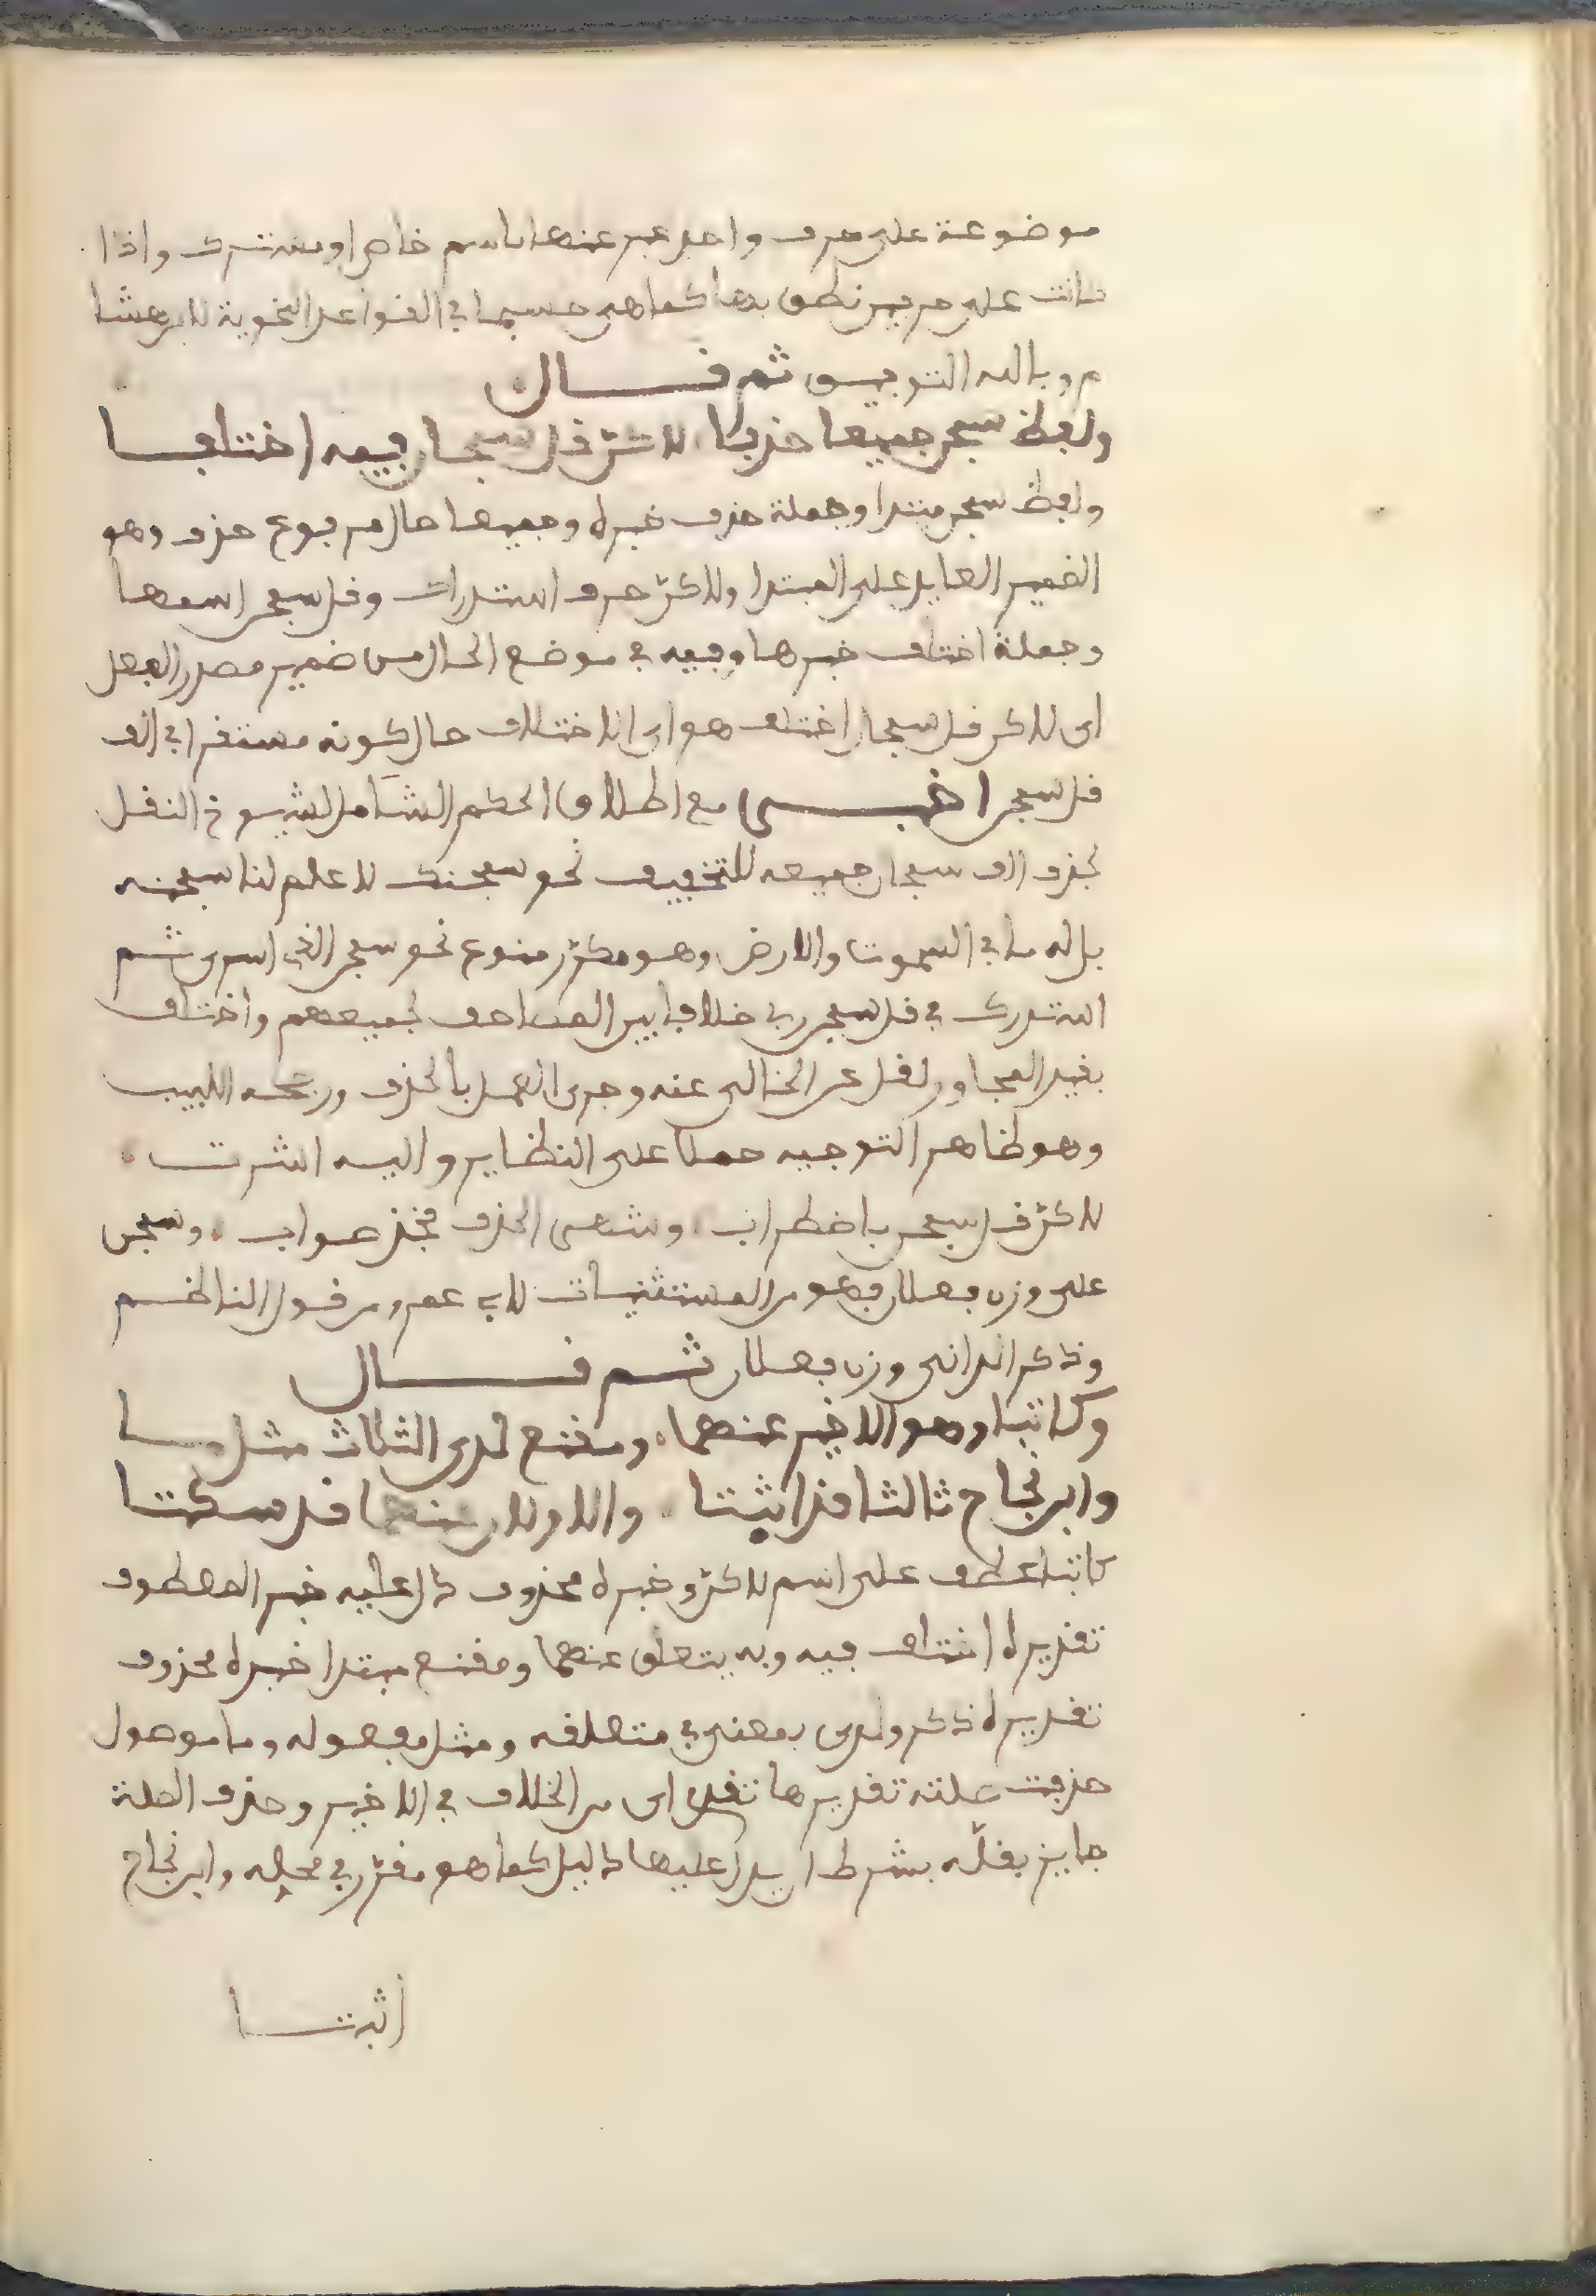 موضوعة على حرف واحد عبر عنها باسم خاص او مشترك واذا
كانت على حرفين نطق بها كما هى حسبما في القواعد النحوية لابن هشا
م وبالله التوفيق ثم قال
ولفظ سبحن جميعا حذفا لاكنّ قل سبحان فيه اختلفا
ولفظ سبحن مبتدا وجملة حذف خبره وجميعا حال مرفوع حذف وهو
الضمير العايد على المبتدا ولاكنّ حرف استدراك وقل سبحن اسمها
وجملة اختلف خبرها وفيه في موضع الحال من ضمير مصدر الفعل
اى لاكن قل سبحان اختلف هو اى الاختلاف حال كونه مستقرا في الف
قل سبحن اخبر مع اطلاق الحكم الشامل لشيوخ النقل
بحذف الف سبحان جميعه للتخفيف نحو سبحنك لا علم لنا سبحنه
بل له ما في السموت والارض وهو مكرّر منوع نحو سبحن الذي اسرى ثم
استدرك في قل سبحن ربي خلافا بين المصاحف لجميعهم واختلف
بقيد المجاور لقل عن الخالى عنه وجرى العمل بالحذف ورجحه اللبيب
وهو ظاهر التوجيه حملا على النظاير واليه اشرت
لاكنّ قل سبحن باضطراب وشهى الحذف فخذ صواب وسبحن
على وزن فعلان فهو من المستثنيات لابي عمرو من قول الناظم
وذكر الدانى وزن فعلان ثم قال
وكاتبا وهو الاخير عنهما ومقنع لدى الثلاث مثل ما
وابن نجاح ثالثا قد اثبتا والاولان عنهما قد سكتا
كاتبا عطف على اسم لاكنّ وخبره محذوف دل عليه خبر المعطوف
تقديره اختلف فيه وبه يتعلق عنهما ومقنع مبتدا خبره محذوف
تقديره ذكر ولدى بمعنى في متعلقه ومثل مفعوله وما موصول
حذفت صلته تقديرها تقدم اى من الخلاف في الاخير وحذف الصلة
جايز بقلّة بشرط ان يدل عليها دليل كما هو مقرّر في محله وابن نجاح
اثبتا